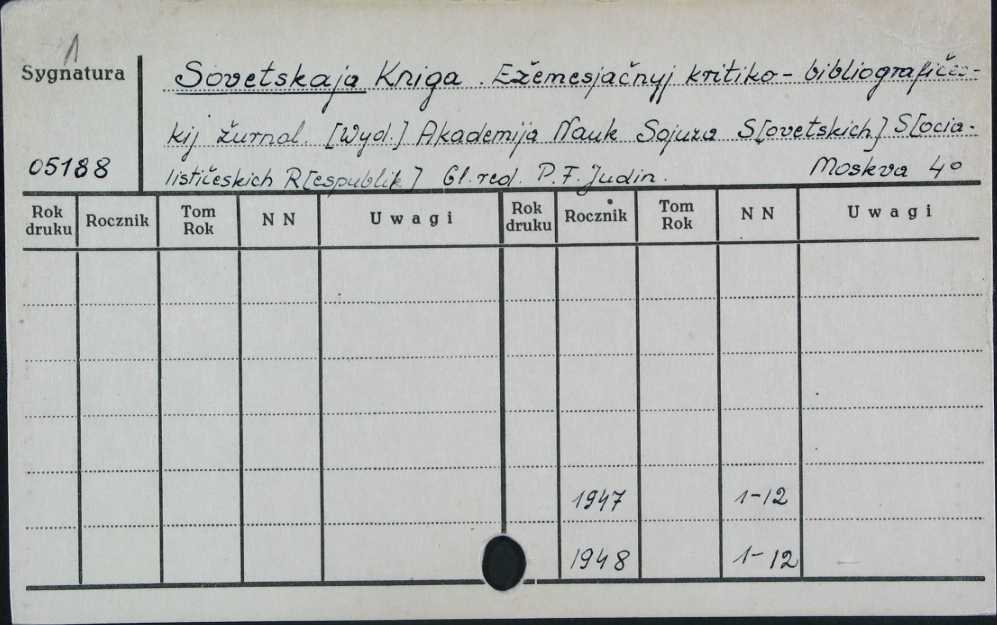 Sygnatura
Sovetskaja Kniga. Ežemesjačnyj kritiko-bibliografičes-
kij žurnal. [Wyd.] Akademija Nauk Sojuza S[ovetskich] S[ocia-
05188
lističeskich R[espublik] Gl. red. P. F. Judin. Moskva 4°
Rok druku Rocznik Tom Rok NN Uwagi Rok druku Rocznik Tom Rok NN Uwagi
1947 1-12
1948 1-12